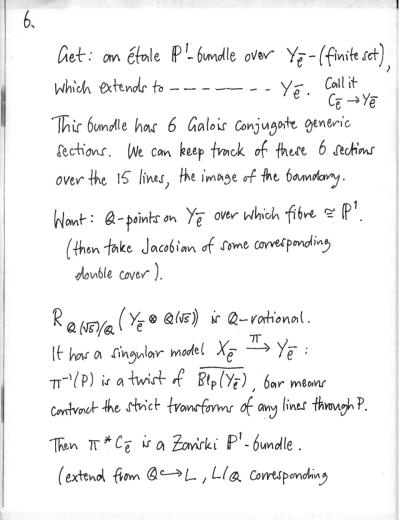 6.
Get: an étale P¹-bundle over Y_ē - (finite set),
which extends to - - - - - - - - Y_ē. Call it
C_ē → Y_ē
This bundle has 6 Galois conjugate generic
sections. We can keep track of these 6 sections
over the 15 lines, the image of the boundary.
Want: Q-points on Y_ē over which fibre ≅ P¹.
(then take Jacobian of some corresponding
double cover).
R_{Q(√5)/Q} (Y_ē ⊗ Q(√5)) is Q-rational.
It has a singular model X_ē —π→ Y_ē :
π⁻¹(P) is a twist of \overline{Bl_P(Y_ē)}, bar means
contract the strict transforms of any lines through P.
Then π*C_ē is a Zariski P¹-bundle.
(extend from Q↪L, L/Q corresponding